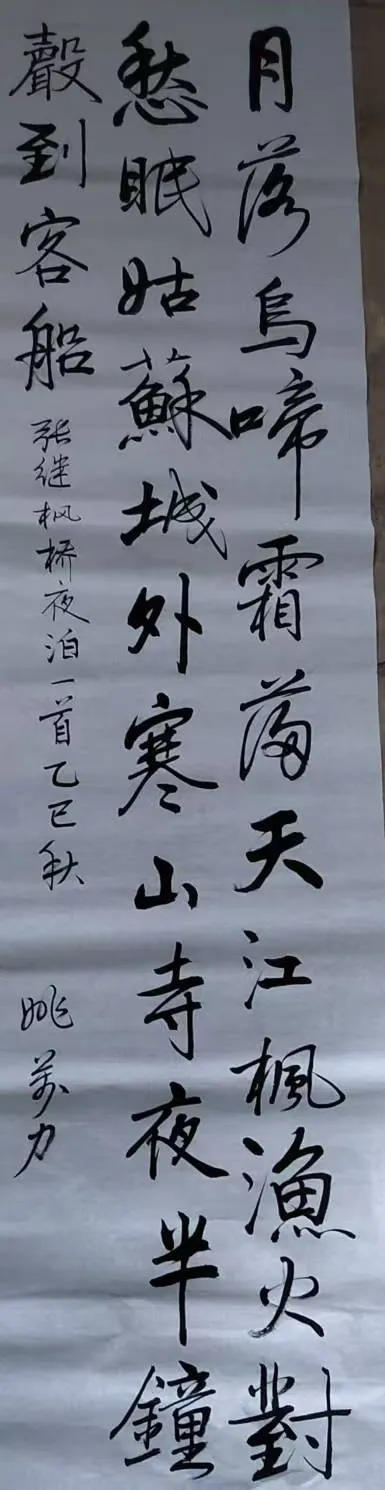 月落烏啼霜滿天江楓漁火對
愁眠姑蘇城外寒山寺夜半鐘
聲到客船
张继枫桥夜泊一首乙巳秋
姚萬力